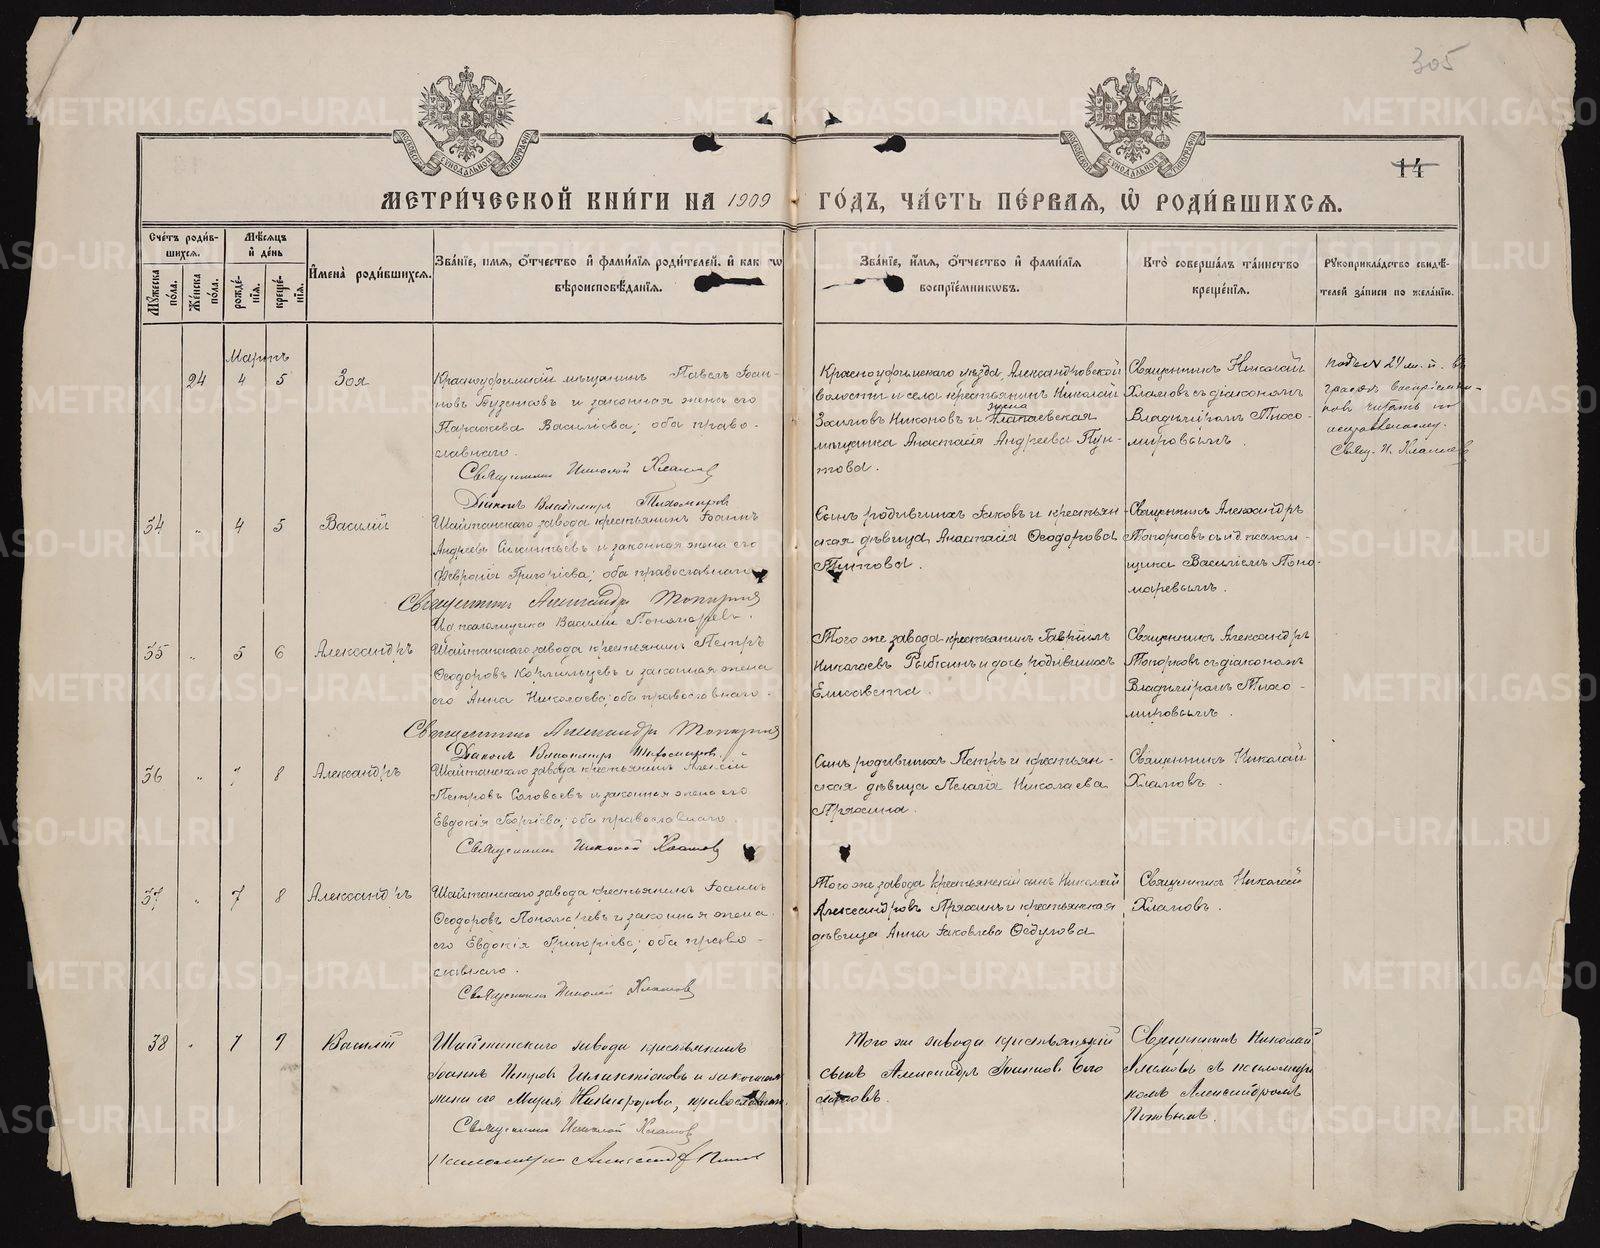 305
14
МЕТРИ́ЧЕСКОЙ КНИ́ГИ НА 1909 ГО́ДЪ, ЧА́СТЬ ПЕ́РВАЯ, Ѡ РОДИ́ВШИХСЯ.
Сче́тъ роди́вшихся.
Му́жеска по́ла.
Же́нска по́ла.
Мѣ́сяцъ и де́нь
рожде́нія.
креще́нія.
Имена̀ роди́вшихся.
Зва́ніе, имя, о́тчество и фами́лія роди́телей, и како́го
вѣроисповѣ́данія.
Зва́ніе, и́мя, о́тчество и фами́лія
воспріе́мниковъ.
Кто̀ соверша́лъ та́инство
креще́нія.
Рукоприкла́дство свидѣ́-
телей за́писи по жела́нію.
Мартъ
24 4 5 Зоя
Красноуфимскій мѣщанинъ Павелъ Іоан-
новъ Бузенковъ и законная жена его
Параскева Василіева; оба право-
славнаго.
Священникъ Николай Хламовъ
Діаконъ Владиміръ Тихомировъ
Красноуфимскаго уѣзда, Александровской
волости и села крестьянинъ Николай
Никоновъ и
жена
мѣщанка Анастасія Андреева Пун-
това.
Священникъ Николай
Хламовъ съ діакономъ
Владиміромъ Тихо-
мировымъ.
Подъ № 24 ж. п. въ
графѣ воспріемни-
ковъ читать по
Свящ. Н. Хламовъ
34 " 4 5 Василій
Шайтанскаго завода крестьянинъ Іоаннъ
Андреевъ и законная жена его
Февронія Григоріева; оба православнаго.
Священникъ Александръ Топорковъ
И. д. псаломщика Василій Пономаревъ.
Сынъ родившихъ Іаковъ и крестьян-
ская дѣвица Анастасія Ѳеодорова
Титова.
Священникъ Александръ
Топорковъ съ и. д. псалом-
щика Василіемъ Поно-
маревымъ.
35 " 5 6 Александръ
Шайтанскаго завода крестьянинъ Петръ
Ѳеодоровъ Кормильцевъ и законная жена
его Анна Николаева; оба православнаго.
Священникъ Александръ Топорковъ
Діаконъ Владиміръ Тихомировъ
Того же завода крестьянинъ Гавріилъ
Николаевъ Рыбкинъ и дочь родившихъ
Елисавета.
Священникъ Александръ
Топорковъ съ діакономъ
Владиміромъ Тихо-
мировымъ.
36 " 7 8 Александръ
Шайтанскаго завода крестьянинъ Алексій
Петровъ Соловьевъ и законная жена его
Евдокія Георгіева; оба православнаго.
Священникъ Николай Хламовъ
Сынъ родившихъ Петръ и крестьян-
ская дѣвица Пелагія Николаева
Пряхина.
Священникъ Николай
Хламовъ.
37 " 7 8 Александръ
Шайтанскаго завода крестьянинъ Іоаннъ
Ѳеодоровъ Пономаревъ и законная жена
его Евдокія Григоріева; оба право-
славнаго.
Священникъ Николай Хламовъ
Того же завода крестьянскій сынъ Николай
Александровъ Пряхинъ и крестьянская
дѣвица Анна Іаковлева Ѳедулова
Священникъ Николай
Хламовъ.
38 " 7 9 Василій
Шайтанскаго завода крестьянинъ
Іоаннъ Петровъ Галактіоновъ и законная
жена его Марія Никифорова, православнаго.
Священникъ Николай Хламовъ
Псаломщикъ Александръ Поповъ
Того же завода крестьянскій
сынъ Александръ Іоанновъ
Священникъ Николай
Хламовъ съ псаломщи-
комъ Александромъ
Поповымъ.